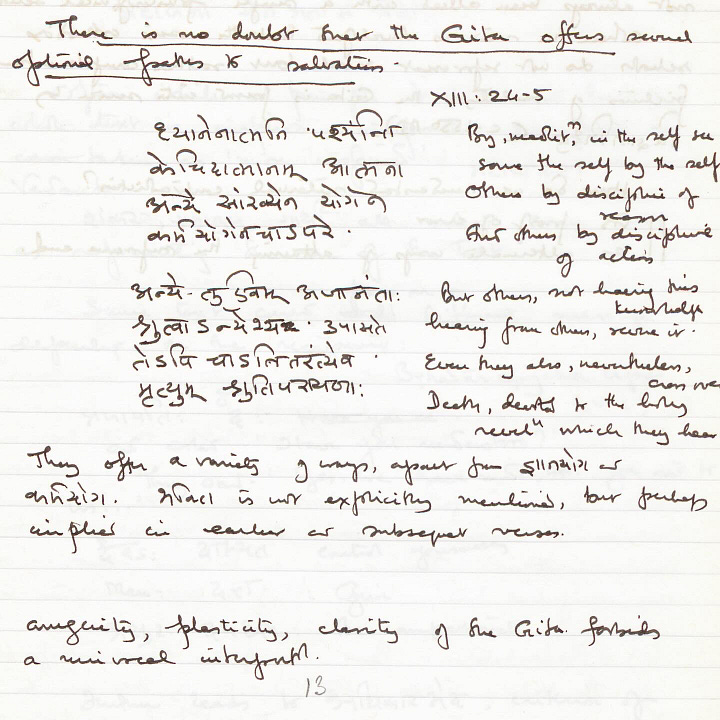 There is no doubt that the Gita offers several
optional paths to salvation.
XIII: 24-5
ध्यानेनात्मनि पश्यंति
By, meditn, in the self see
केचिदात्मानम् आत्मना
some the self by the self
अन्ये सांख्येन योगेन
Others by discipline of
reason
कर्मयोगेन चाऽपरे .
And others by discipline
of action
अन्ये तु
अजानंतः
But others, not having this
knowledge
श्रुत्वाऽन्येभ्य उपासते
hearing from others, revere it.
तेऽपि चाऽतितरंत्येव
Even they also, nevertheless,
cross over
मृत्युम् श्रुतिपरायणाः
Death, devoted to the holy
reveln which they hear
They offer a variety of ways, apart from ज्ञानयोग or
कर्मयोग. भक्ति is not explicitly mentioned, but perhaps
implied in earlier or subsequent verses.
plasticity, clarity of the Gita forbids
a univocal
13